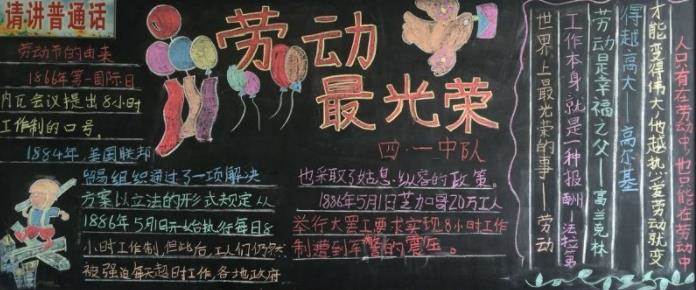 请讲普通话
劳动节的由来
1866年第一国际日
内瓦会议提出8小时
工作制的口号。
1884年,美国联邦
贸易组织通过了一项解决
方案以立法的形式规定从
1886年5月1日开始执行每日8
小时工作制,但此后,工人们仍然
被强迫每天超时工作,各地政府
劳动
最光荣
四·一中队
也采取了姑息、纵容的政策。
1886年5月1日芝加哥20万工人
举行大罢工要求实现8小时工作
制遭到军警的震压。
人只有在劳动中,也只能在劳动中
才能变得伟大,他越热爱劳动就变
得越高大——高尔基
劳动是幸福之父——富兰克林
工作本身就是一种报酬——法拉第
世界上最光荣的事——劳动